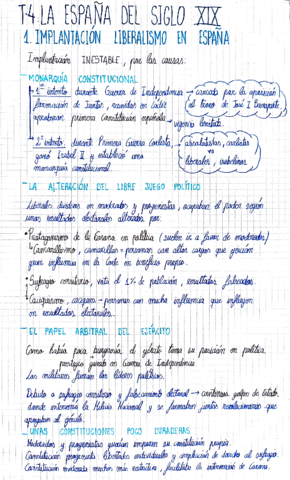 T.4. LA ESPAÑA DEL SIGLO XIX
1. IMPLANTACIÓN LIBERALISMO EN ESPAÑA
Implantación INESTABLE, por las causas:
- MONARQUÍA CONSTITUCIONAL
1er intento: durante Guerra de Independencia → causada por la
formación de Juntas, reunidas en Cádiz al trono de José I Bonaparte
aprobaron primera Constitución española → vigencia limitada
2º intento: durante Primera Guerra Carlista, → absolutistas, carlistas
ganó Isabel II y estableció una vs
monarquía constitucional liberales, isabelinos
- LA ALTERACIÓN DEL LIBRE JUEGO POLÍTICO
Liberales divididos en moderados y progresistas, ocupaban el poder según
unos resultados electorales alterados por:
Protagonismo de la Corona en política (suelen ir a favor de moderados)
Camarillismo, camarillas = personas con altos cargos que ejercían
gran influencia en la Corte en beneficio propio.
Sufragio censitario, vota el 1% de población, resultados falseados.
Caciquismo, caciques = personas con mucha influencia que influyen
en resultados electorales.
- EL PAPEL ARBITRAL DEL EJÉRCITO
Como había poca burguesía el ejército tiene su posición en política,
prestigio ganado en Guerra de Independencia
Los militares fueron los líderes políticos.
Debido a sufragio censitario y falseamiento electoral → golpes de Estado,
donde intervenía la Milicia Nacional y se formaban juntas revolucionarias que
apoyaban el golpe.
- UNAS CONSTITUCIONES POCO DURADERAS
Moderados y progresistas querían imponer su constitución propia.
Constitución progresista: libertades individuales y ampliación de derecho al sufragio.
Constitución moderada: mucho más estricta, facilitaba la intervención de Corona.